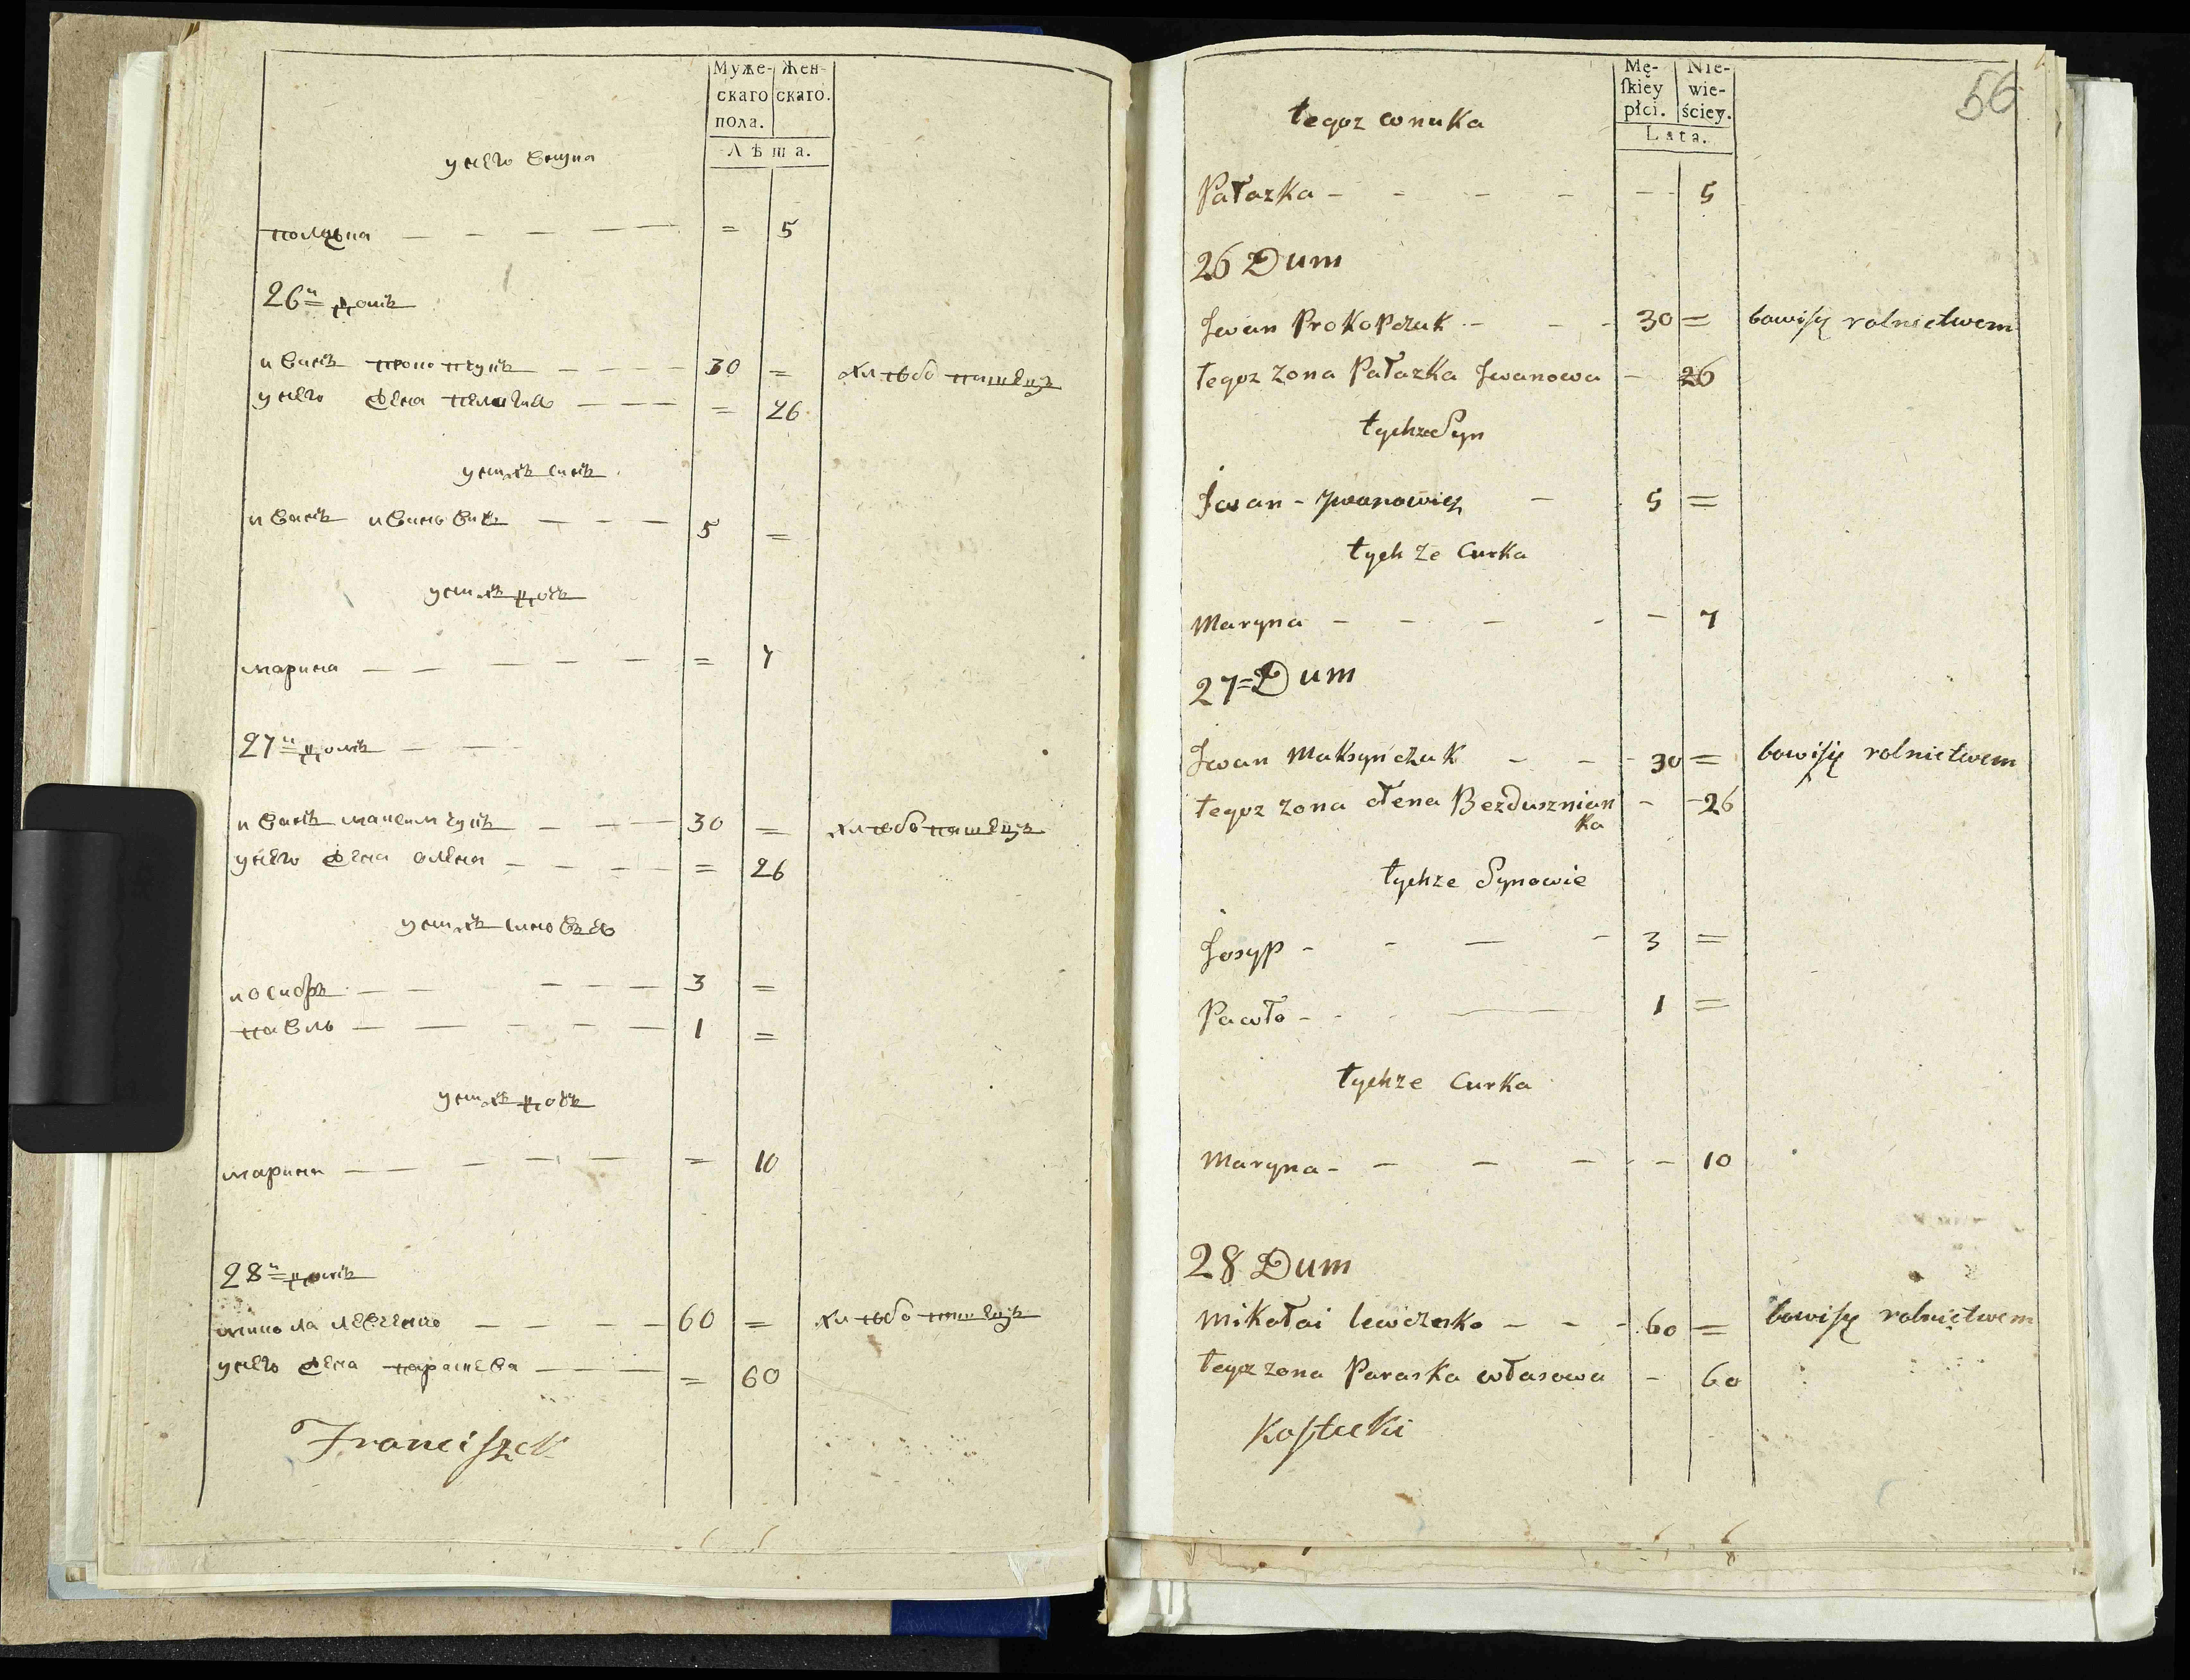 Муже-
скаго
пола.
Жен-
скаго.
Лѣта.
у него внука
5
26й домъ
иванъ прокопчукъ 30 = хлѣбопашецъ
у него жена пелагия = 26
у нихъ синъ
иванъ ивановичь 5 =
у нихъ дочь
марина = 7
27й домъ
иванъ максимчукъ 30 = хлѣбопашецъ
у него жена олена = 26
у нихъ синовья
иосифъ 3 =
павлъ 1 =
у нихъ дочь
марина = 10
28й домъ
микола левченко 60 = хлѣбопашецъ
у него жена параскева = 60
Franciszek
56
Mę-
ſkiey
płci.
Nie-
wie-
ściey.
Lata.
tegoz wnuka
Pałazka - - - - - 5
26 Dum
Jwan Prokopczuk - - - 30 = bawiſię rolnictwem
tegoz zona Pałazka Jwanowa - 26
tychze Syn
Jwan - Jwanowicz - 5 =
tych ze Curka
Maryna - - - - - 7
27 = Dum
Jwan Maksyńczuk - - - 30 = bawiſię rolnictwem
tegoz zona ołena Bezdusznian - - 26
ka
tychze Synowie
Josyp - - - - 3 =
Pawło - - - 1 =
tychze Curka
Maryna - - - - - - 10
28 Dum
Mikołai lewczenko - - - 60 = bawiſię rolnictwem
tegoz zona Paraska własowa - 60
Koſtecki